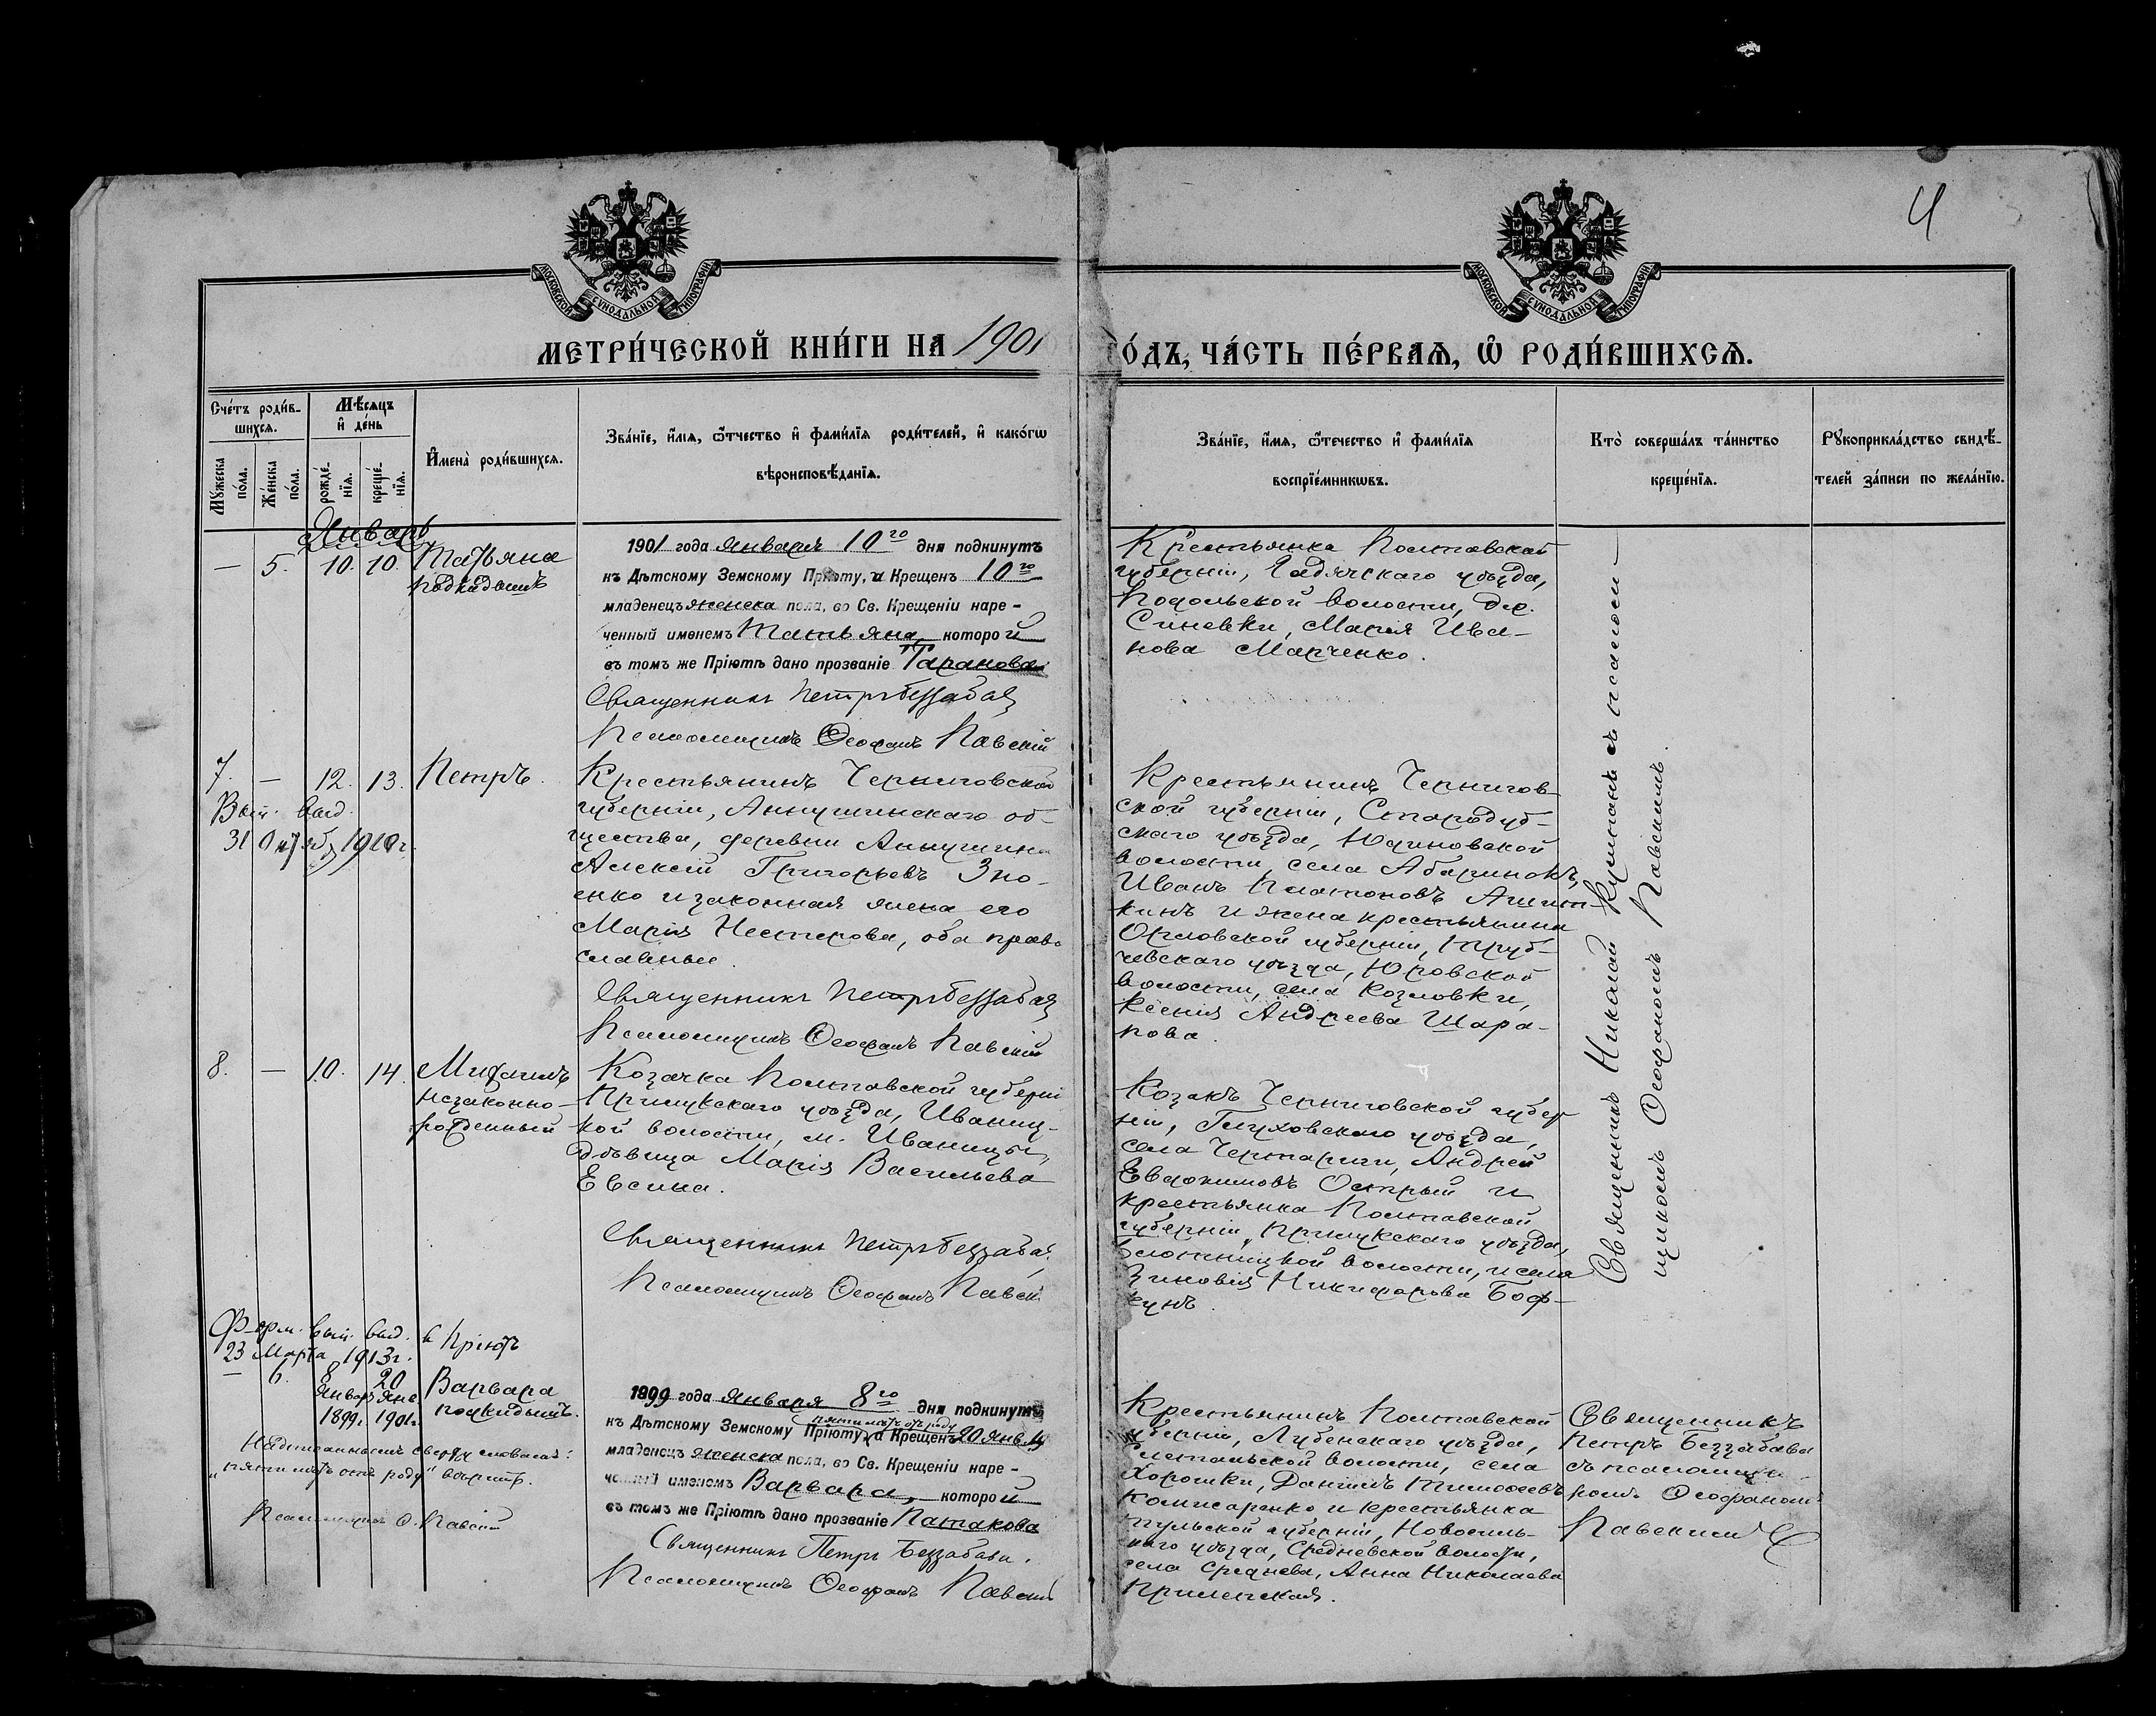 4
МОСКОВСКОЙ СѴНОДАЛЬНОЙ ТИПОГРАФІИ
МОСКОВСКОЙ СѴНОДАЛЬНОЙ ТИПОГРАФІИ
МЕТРИ́ЧЕСКОЙ КНИ́ГИ НА 1901
О́ДЪ, ЧА́СТЬ ПЕ́РВАѦ, Ѡ҆ РОДИ́ВШИХСѦ.
Сче́тъ роди́в-
шихсѧ.
Мꙋ́жеска по́ла.
Же́нска по́ла.
Мѣ́сѧцъ
и҆ де́нь
рожде́-
нїѧ.
креще́-
нїѧ.
И҆мена̀ роди́вшихсѧ.
Зва́нїе, и҆́мѧ, ѻ҆́тчество и҆ фами́лїѧ роди́телей, и҆ како́гѡ
вѣроисповѣ́данїѧ.
Зва́нїе, и҆́мѧ, ѻ҆те́чество и҆ фами́лїѧ
воспрїе́мникѡвъ.
Кто̀ соверша́лъ та́инство
креще́нїѧ.
Рꙋкоприкла́дство свидѣ́-
телей за́писи по жела́нїю.
Январь
— 5. 10. 10. Татьяна
подкидышъ
1901 года Января 10го дня подкинутъ
къ Дѣтскому Земскому Пріюту, и Крещенъ 10го
младенецъ женска пола, во Св. Крещеніи наре-
ченный именемъ Татьяна, которой
въ томъ же Пріютѣ дано прозваніе Таранова
Священникъ Петръ Беззабава
Псаломщикъ Ѳеофанъ Павскій
Крестьянка Полтавской
губерніи, Гадячскаго уѣзда,
волости, дер.
Синевки, Марія Ива-
нова Марченко.
7. — 12. 13. Петръ.
Вып. выд.
31 Октяб 1910 г.
Крестьянинъ Черниговской
губерніи, Аннушинскаго об-
щества, деревни Аннушина
Алексій Григорьевъ Зно-
енко и законная жена его
Марія Нестерова, оба право
славные.
Священникъ Петръ Беззабава
Псаломщикъ Ѳеофанъ Павскій
Крестьянинъ Чернигов-
ской губерніи, Стародуб-
скаго уѣзда,
волости, села
Иванъ Платоновъ
кинъ и жена крестьянина
Орловской губерніи, Труб-
чевскаго уѣзда, Юровской
волости, села Козловки,
Ксенія Андреева Шара-
пова.
8. — 10. 14. Михаилъ
незаконно-
рожденный
Козачка Полтавской губерні
Прилукскаго уѣзда, Иваниц-
кой волости, м. Иваницы,
дѣвица Марія Васильева
Евсина.
Священникъ Петръ Беззабава
Псаломщикъ Ѳеофанъ Павскі
Козакъ Черниговской губер
ніи, Глуховскаго уѣзда,
села Чертариги, Андрей
Евдокимовъ Острый и
крестьянка Полтавской
губерніи, Прилукскаго уѣзда,
волости, и села
Зиновія Никифорова
Форм. вып. выд. в Пріютъ
23 Марта 1913 г.
— 6. 8 20
Январ Янв
1899 г. 1901 г.
Варвара
подкидышъ.
Надписаннымъ сверху словамъ:
„пяти лѣтъ отъ роду" вѣрить.
Псаломщикъ Ѳ. Павскій
1899 года Января 8го дня подкинутъ
пяти лѣтъ отъ роду
къ Дѣтскому Земскому Пріюту, и Крещенъ 20 Янв.
младенецъ женска пола, во Св. Крещеніи наре-
ченный именемъ Варвара, которой
въ томъ же Пріютѣ дано прозваніе Патакова
Священникъ Петръ Беззабава.
Псаломщикъ Ѳеофанъ Павскій
Крестьянинъ Полтавской
губерніи, Лубенскаго уѣзда,
волости, села
Хорошки, Даніилъ Тимоѳеевъ
Комисаренко и крестьянка
Тульской губерніи, Новосиль-
скаго уѣзда, Средневской волости,
села Среднева, Анна Николаева
Прилепская.
Священникъ Николай съ псалом-
щикомъ Ѳеофаномъ Павскимъ.
Священникъ
Петръ Беззабава
съ псаломщи-
комъ Ѳеофаномъ
Павскимъ